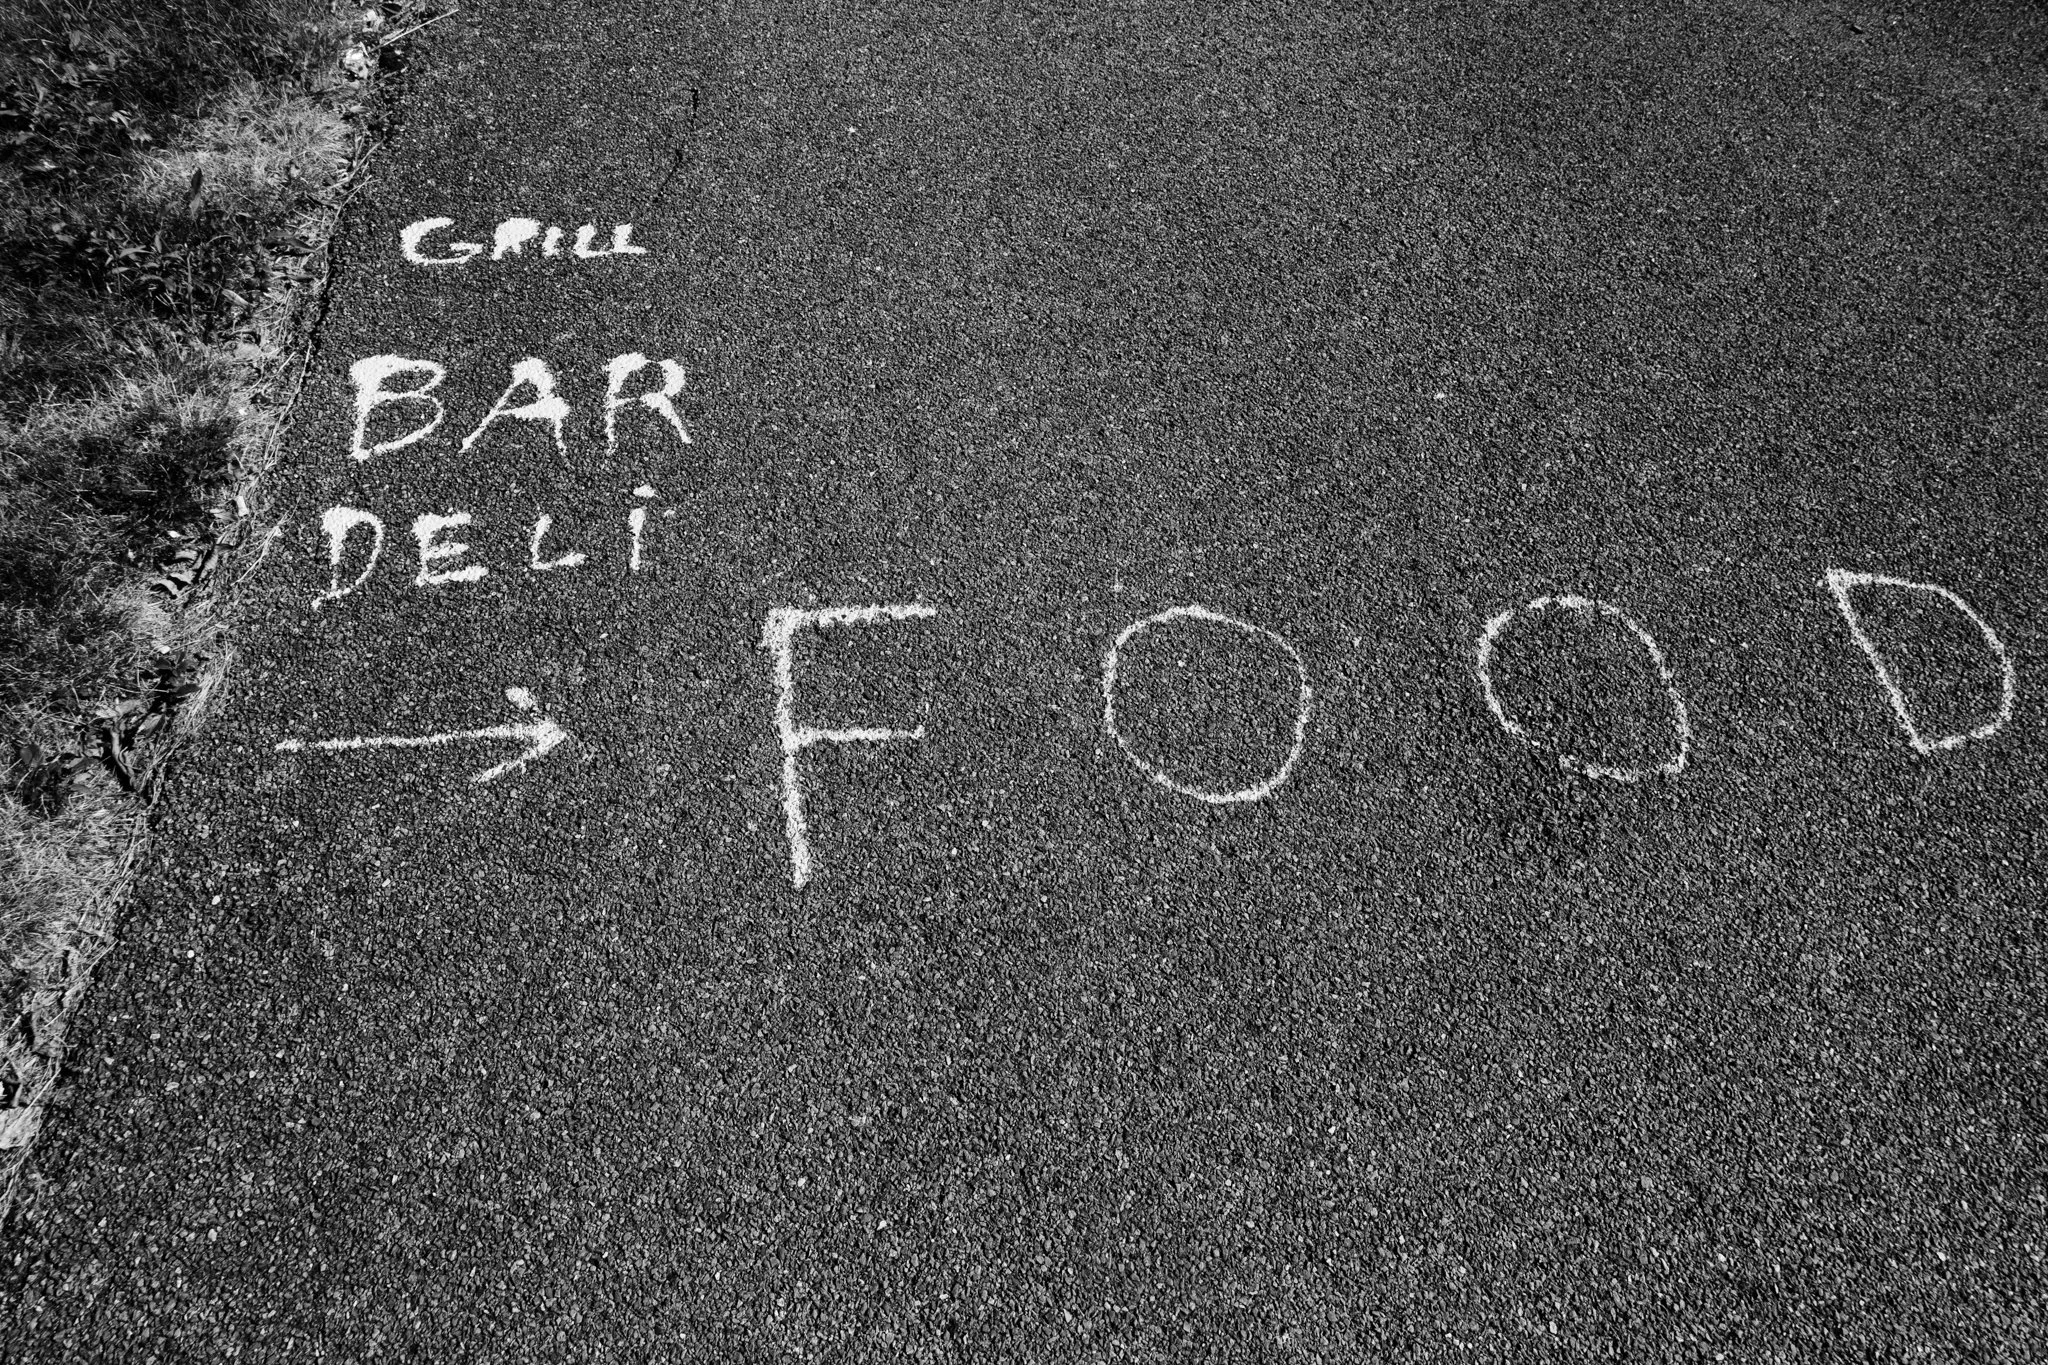 GRILL
BAR
DELi
→ FOOD